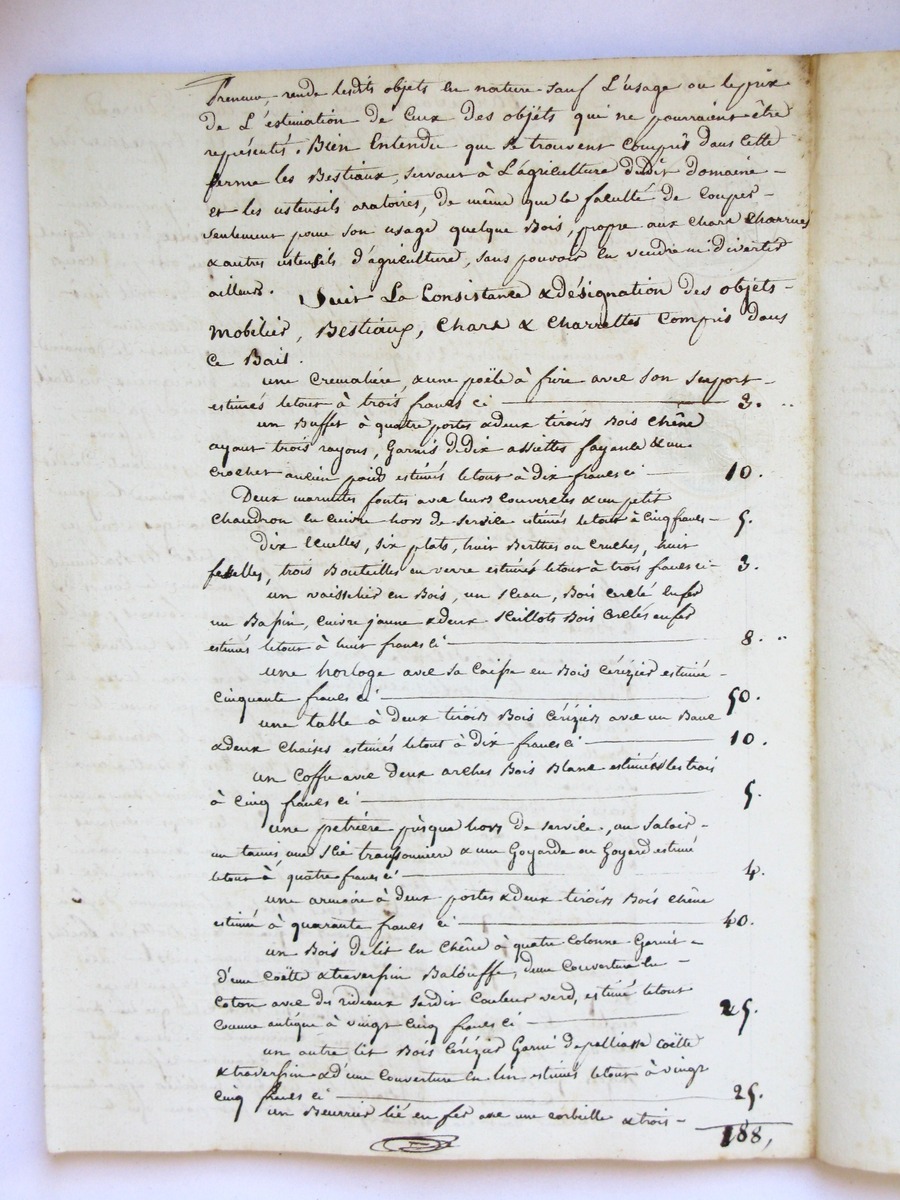 Preneur, rende lesdits objets en nature sauf L'usage ou le prix
de L'estimation de Ceux des objets qui ne pourraient être
représentés. Bien Entendu que se trouvent Compris dans Cette
ferme les Bestiaux, servant à L'agriculture dudit domaine -
et les ustensils aratoires, de même que la faculté de Couper -
seulement pour son usage quelque Bois, propre aux Chars Charrues
& autres ustensils d'agriculture, sans pouvoir en vendre ni divertir
ailleurs. Suit La Consistance & désignation des objets -
mobilier, Bestiaux, Chars & Charrettes Compris dans
Ce Bail.
une Cremalière, & une poële à frire avec son Suport -
estimés letout à trois francs Ci 3.
un Buffet à quatre portes & deux tiroirs Bois Chêne
ayant trois rayons, Garnis de dix assiettes fayance & un
Crochet ancien poids estimés letout à dix francs ci 10.
Deux marmites fontes avec leurs Couvercles & un petit
Chaudron en Cuivre hors de service estimés letout à Cinq francs - 5.
dix Ecuelles, six plats, huit Berthes ou Cruches, huit
feselles, trois Bouteilles en verre estimés letout à trois francs ci - 3.
un vaisselier en Bois, un Seau, Bois Cerclé en fer
un Bassin, Cuivre jaune & deux Seillots Bois Cerclés en fer
estimés letout à huit francs Ci 8.
une horloge avec sa Caisse en Bois Cérizier estimée -
Cinquante francs Ci 50.
une table à deux tiroirs Bois Cérizier avec un Banc
& deux Chaises estimés letout à dix francs Ci 10.
un Coffre avec deux arches Bois Blanc estimés les trois
à Cinq francs Ci 5.
une petrière presque hors de service, un Saloir -
un tamis une Scie & une Goyarde ou Goyard estimé
letout à quatre francs Ci 4.
une armoire à deux portes & deux tiroirs Bois Chêne
estimée à quarante francs Ci 40.
un Bois de lit en Chêne à quatre Colonne Garnit -
d'une Coëtte & traversin Balouffe, d'une Couverture en -
Coton avec des rideaux Couleur verd, estimé letout
Comme antique à vingt Cinq francs Ci 25.
un autre lit Bois Cérizier Garni de palliasse Coëtte
& traversin & d'une Couverture en lin estimés letout à vingt
Cinq francs Ci 25.
un Beurrier lié en fer avec une Corbeille & trois -
188,